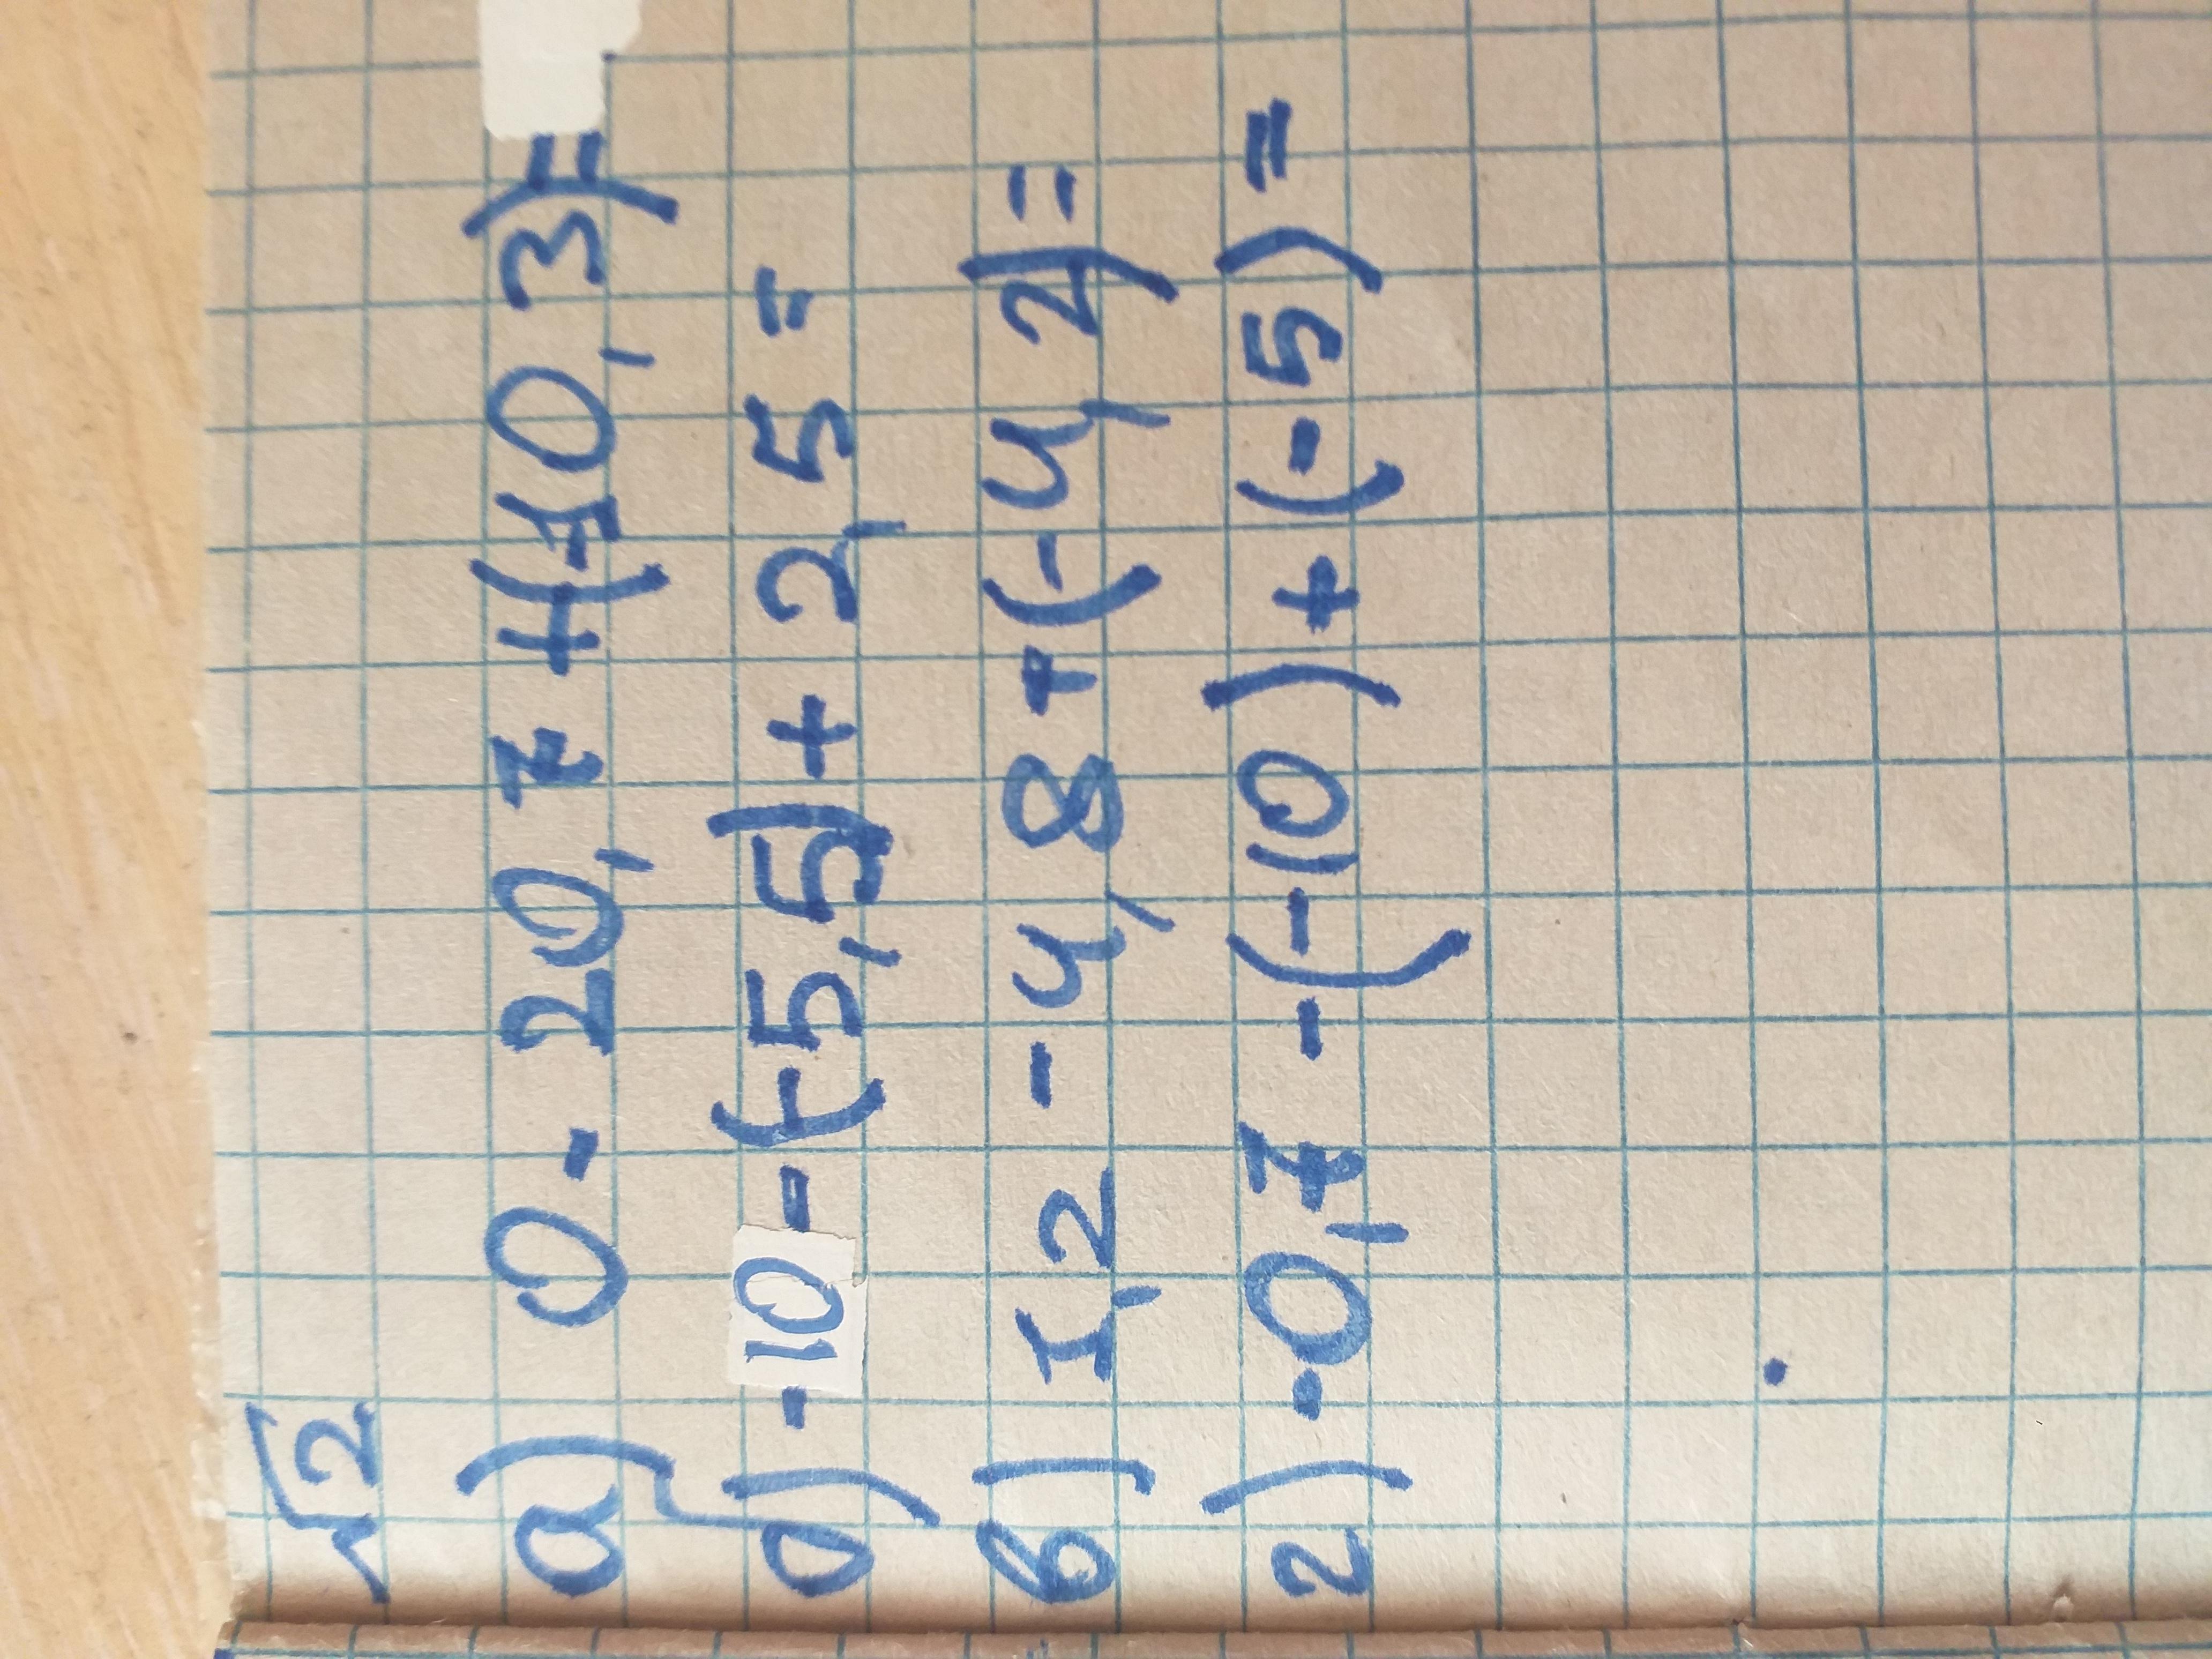 √2
а) 0 - 20,7 + (-10,3) =
б) -10 - (-5,5) + 2,5 =
в) 1,2 - 4,8 + (-4,2) =
г) -0,7 - (-10) + (-5) =